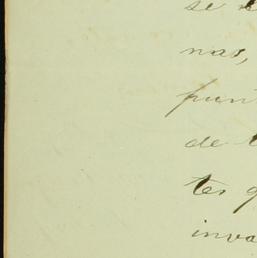 se
nas,
pun
de
tes
inva